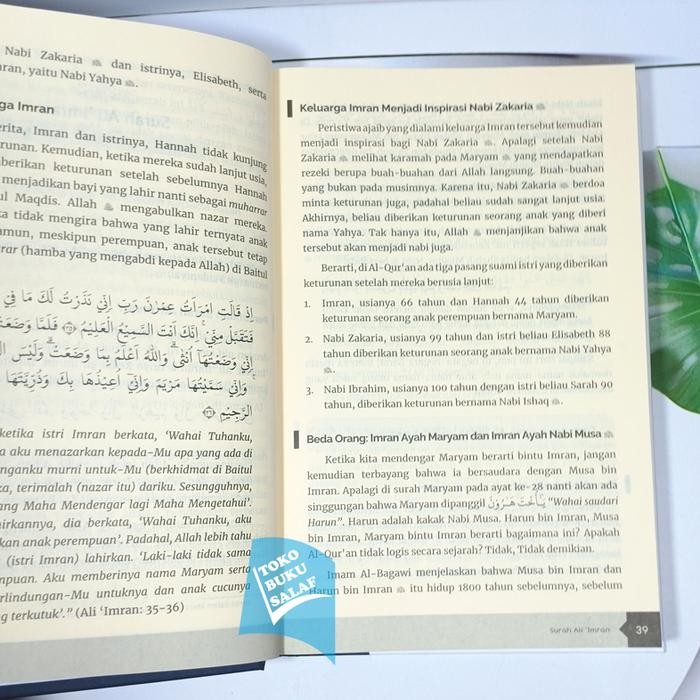 Nabi Zakaria ﷺ dan istrinya, Elisabeth, serta
ran, yaitu Nabi Yahya ﷺ.
ga Imran
erita, Imran dan istrinya, Hannah tidak kunjung
urunan. Kemudian, ketika mereka sudah lanjut usia,
berikan keturunan setelah sebelumnya Hannah
menjadikan bayi yang lahir nanti sebagai muharrar
ul Maqdis. Allah ﷻ mengabulkan nazar mereka.
ka tidak mengira bahwa yang lahir ternyata anak
amun, meskipun perempuan, anak tersebut tetap
rar (hamba yang mengabdi kepada Allah) di Baitul
إِذْ قَالَتِ امْرَأَتُ عِمْرَانَ رَبِّ إِنِّي نَذَرْتُ لَكَ مَا فِي
فَتَقَبَّلْ مِنِّي ۖ إِنَّكَ أَنْتَ السَّمِيعُ الْعَلِيمُ ﴿٣٥﴾ فَلَمَّا وَضَعَتْ
إِنِّي وَضَعْتُهَا أُنْثَىٰ وَاللَّهُ أَعْلَمُ بِمَا وَضَعَتْ وَلَيْسَ
وَإِنِّي سَمَّيْتُهَا مَرْيَمَ وَإِنِّي أُعِيذُهَا بِكَ وَذُرِّيَّتَهَا
الرَّجِيمِ ﴿٣٦﴾
ketika istri Imran berkata, 'Wahai Tuhanku,
a aku menazarkan kepada-Mu apa yang ada di
nganku murni untuk-Mu (berkhidmat di Baitul
ka, terimalah (nazar itu) dariku. Sesungguhnya,
ang Maha Mendengar lagi Maha Mengetahui'.
hirkannya, dia berkata, 'Wahai Tuhanku, aku
kan anak perempuan'. Padahal, Allah lebih tahu
(istri Imran) lahirkan. 'Laki-laki tidak sama
mpuan. Aku memberinya nama Maryam serta
erlindungan-Mu untuknya dan anak cucunya
g terkutuk'." (Ali 'Imran: 35-36)
Keluarga Imran Menjadi Inspirasi Nabi Zakaria ﷺ
Peristiwa ajaib yang dialami keluarga Imran tersebut kemudian
menjadi inspirasi bagi Nabi Zakaria ﷺ. Apalagi setelah Nabi
Zakaria ﷺ melihat karamah pada Maryam ﷺ yang mendapatkan
rezeki berupa buah-buahan dari Allah langsung. Buah-buahan
yang bukan pada musimnya. Karena itu, Nabi Zakaria ﷺ berdoa
minta keturunan juga, padahal beliau sudah sangat lanjut usia.
Akhirnya, beliau diberikan keturunan seorang anak yang diberi
nama Yahya. Tak hanya itu, Allah ﷻ menjanjikan bahwa anak
tersebut akan menjadi nabi juga.
Berarti, di Al-Qur'an ada tiga pasang suami istri yang diberikan
keturunan setelah mereka berusia lanjut:
1. Imran, usianya 66 tahun dan Hannah 44 tahun diberikan
keturunan seorang anak perempuan bernama Maryam.
2. Nabi Zakaria, usianya 99 tahun dan istri beliau Elisabeth 88
tahun diberikan keturunan seorang anak bernama Nabi Yahya
ﷺ.
3. Nabi Ibrahim, usianya 100 tahun dengan istri beliau Sarah 90
tahun, diberikan keturunan bernama Nabi Ishaq ﷺ.
Beda Orang: Imran Ayah Maryam dan Imran Ayah Nabi Musa ﷺ
Ketika kita mendengar Maryam berarti bintu Imran, jangan
kemudian terbayang bahwa ia bersaudara dengan Musa bin
Imran. Apalagi di surah Maryam pada ayat ke-28 nanti akan ada
singgungan bahwa Maryam dipanggil يَٰٓأُخْتَ هَٰرُونَ "Wahai saudari
Harun". Harun adalah kakak Nabi Musa. Harun bin Imran, Musa
bin Imran, Maryam bintu Imran berarti bagaimana ini? Apakah
Al-Qur'an tidak logis secara sejarah? Tidak, Tidak demikian.
Imam Al-Bagawi menjelaskan bahwa Musa bin Imran dan
Harun bin Imran ﷺ itu hidup 1800 tahun sebelumnya, sebelum
Surah Ali 'Imran 39
TOKO
BUKU
SALAF